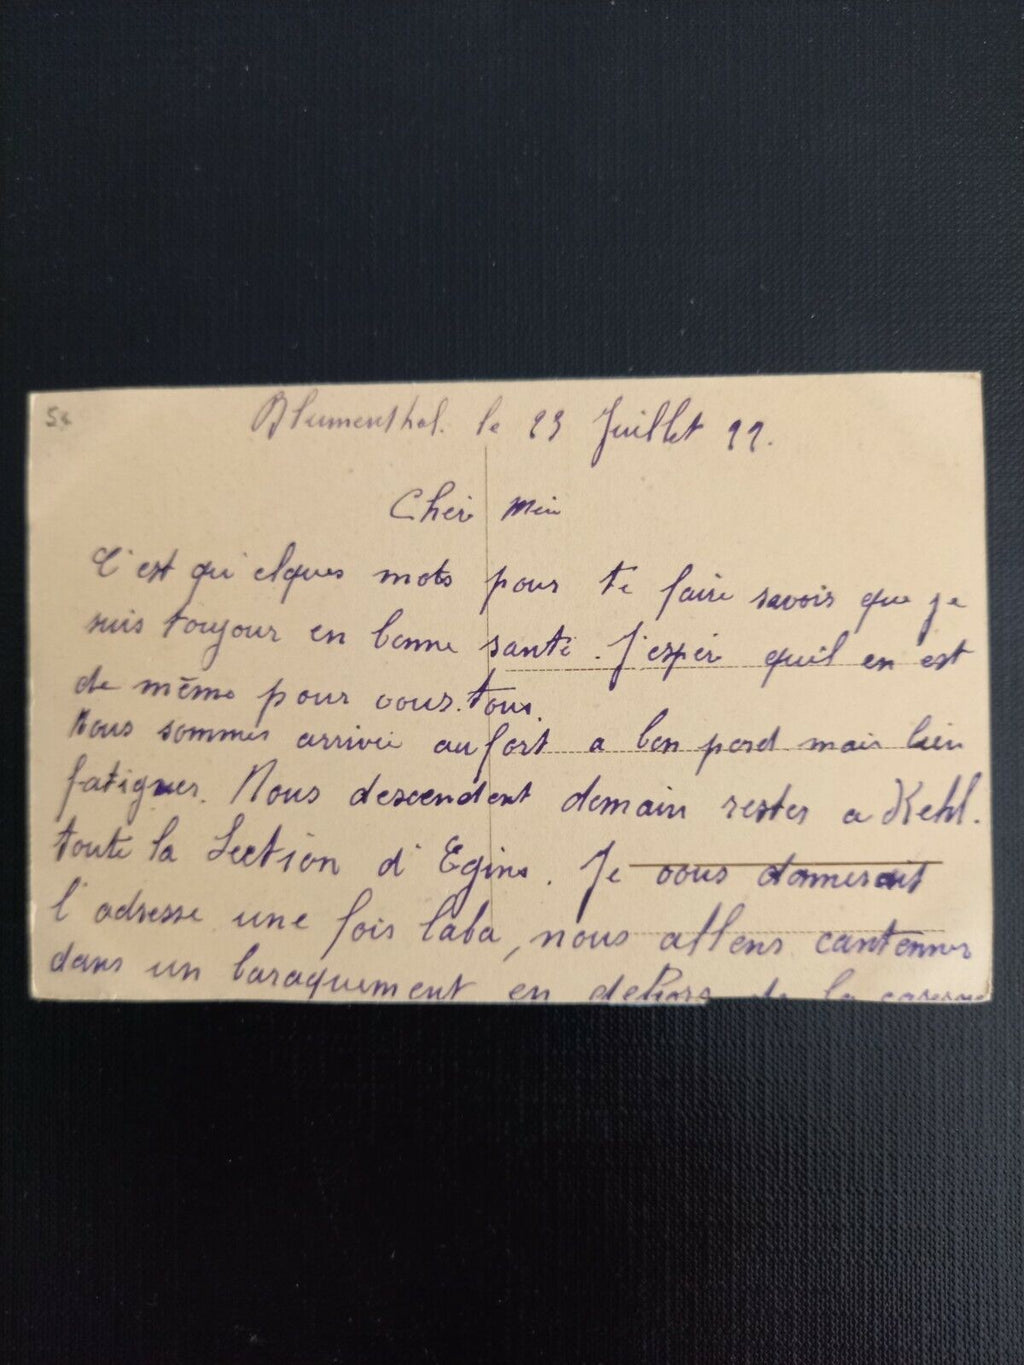 Blumenthal. le 23 Juillet 22.
Cheri
C'est qu'elques mots pour te faire savoir que je
suis toujour en bonne santé. J'esperé quil en est
de même pour vous. tous.
Nous sommes arrivée au fort a bon pord mais bien
fatiguer. Nous descendent demain rester a Kehl.
toute la Section d'Egins. Je vous donnerait
l'adresse une fois laba, nous allens cantenner
dans un baraquement en dehors de la caserne